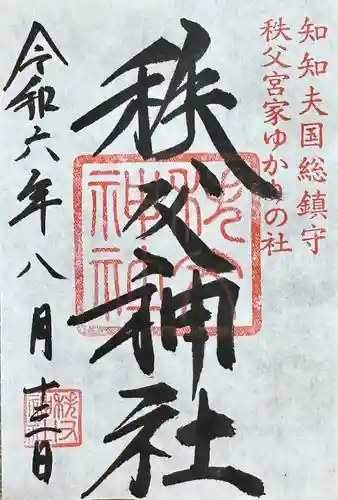 知知夫国総鎮守
秩父宮家ゆかりの社
秩父神社
令和六年八月十三日